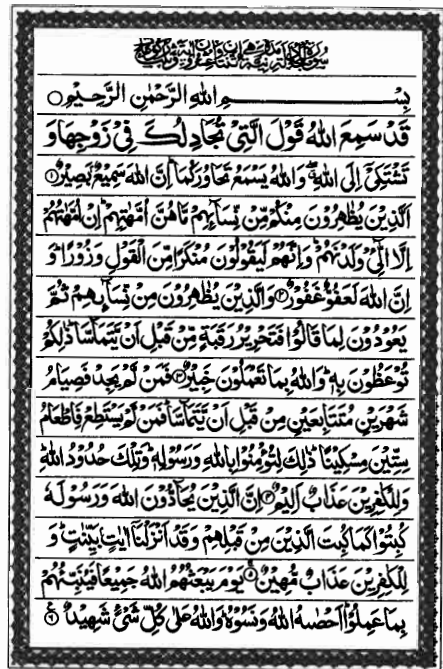 بِسْمِ اللهِ الرَّحْمٰنِ الرَّحِيْمِ
قَدْ سَمِعَ اللهُ قَوْلَ الَّتِيْ تُجَادِلُكَ فِيْ زَوْجِهَا وَ
تَشْتَكِيْٓ اِلَى اللهِ ۖۗ وَاللهُ يَسْمَعُ تَحَاوُرَكُمَا ؕ اِنَّ اللهَ سَمِيْعٌۢ بَصِيْرٌ ﴿١﴾
اَلَّذِيْنَ يُظٰهِرُوْنَ مِنْكُمْ مِّنْ نِّسَآئِهِمْ مَّا هُنَّ اُمَّهٰتِهِمْ ؕ اِنْ اُمَّهٰتُهُمْ
اِلَّا الّٰٓـِٔيْ وَلَدْنَهُمْ ؕ وَاِنَّهُمْ لَيَقُوْلُوْنَ مُنْكَرًا مِّنَ الْقَوْلِ وَزُوْرًا ؕ وَ
اِنَّ اللهَ لَعَفُوٌّ غَفُوْرٌ ﴿٢﴾ وَالَّذِيْنَ يُظٰهِرُوْنَ مِنْ نِّسَآئِهِمْ ثُمَّ
يَعُوْدُوْنَ لِمَا قَالُوْا فَتَحْرِيْرُ رَقَبَةٍ مِّنْ قَبْلِ اَنْ يَّتَمَآسَّا ؕ ذٰلِكُمْ
تُوْعَظُوْنَ بِهٖ ؕ وَاللهُ بِمَا تَعْمَلُوْنَ خَبِيْرٌ ﴿٣﴾ فَمَنْ لَّمْ يَجِدْ فَصِيَامُ
شَهْرَيْنِ مُتَتَابِعَيْنِ مِنْ قَبْلِ اَنْ يَّتَمَآسَّا ؕ فَمَنْ لَّمْ يَسْتَطِعْ فَاِطْعَامُ
سِتِّيْنَ مِسْكِيْنًا ؕ ذٰلِكَ لِتُؤْمِنُوْا بِاللهِ وَرَسُوْلِهٖ ؕ وَتِلْكَ حُدُوْدُ اللهِ ؕ
وَلِلْكٰفِرِيْنَ عَذَابٌ اَلِيْمٌ ﴿٤﴾ اِنَّ الَّذِيْنَ يُحَآدُّوْنَ اللهَ وَرَسُوْلَهٗ
كُبِتُوْا كَمَا كُبِتَ الَّذِيْنَ مِنْ قَبْلِهِمْ وَقَدْ اَنْزَلْنَآ اٰيٰتٍۭ بَيِّنٰتٍ ؕ وَ
لِلْكٰفِرِيْنَ عَذَابٌ مُّهِيْنٌ ﴿٥﴾ يَوْمَ يَبْعَثُهُمُ اللهُ جَمِيْعًا فَيُنَبِّئُهُمْ
بِمَا عَمِلُوْا ؕ اَحْصٰىهُ اللهُ وَنَسُوْهُ ؕ وَاللهُ عَلٰى كُلِّ شَيْءٍ شَهِيْدٌ ﴿٦﴾ ع